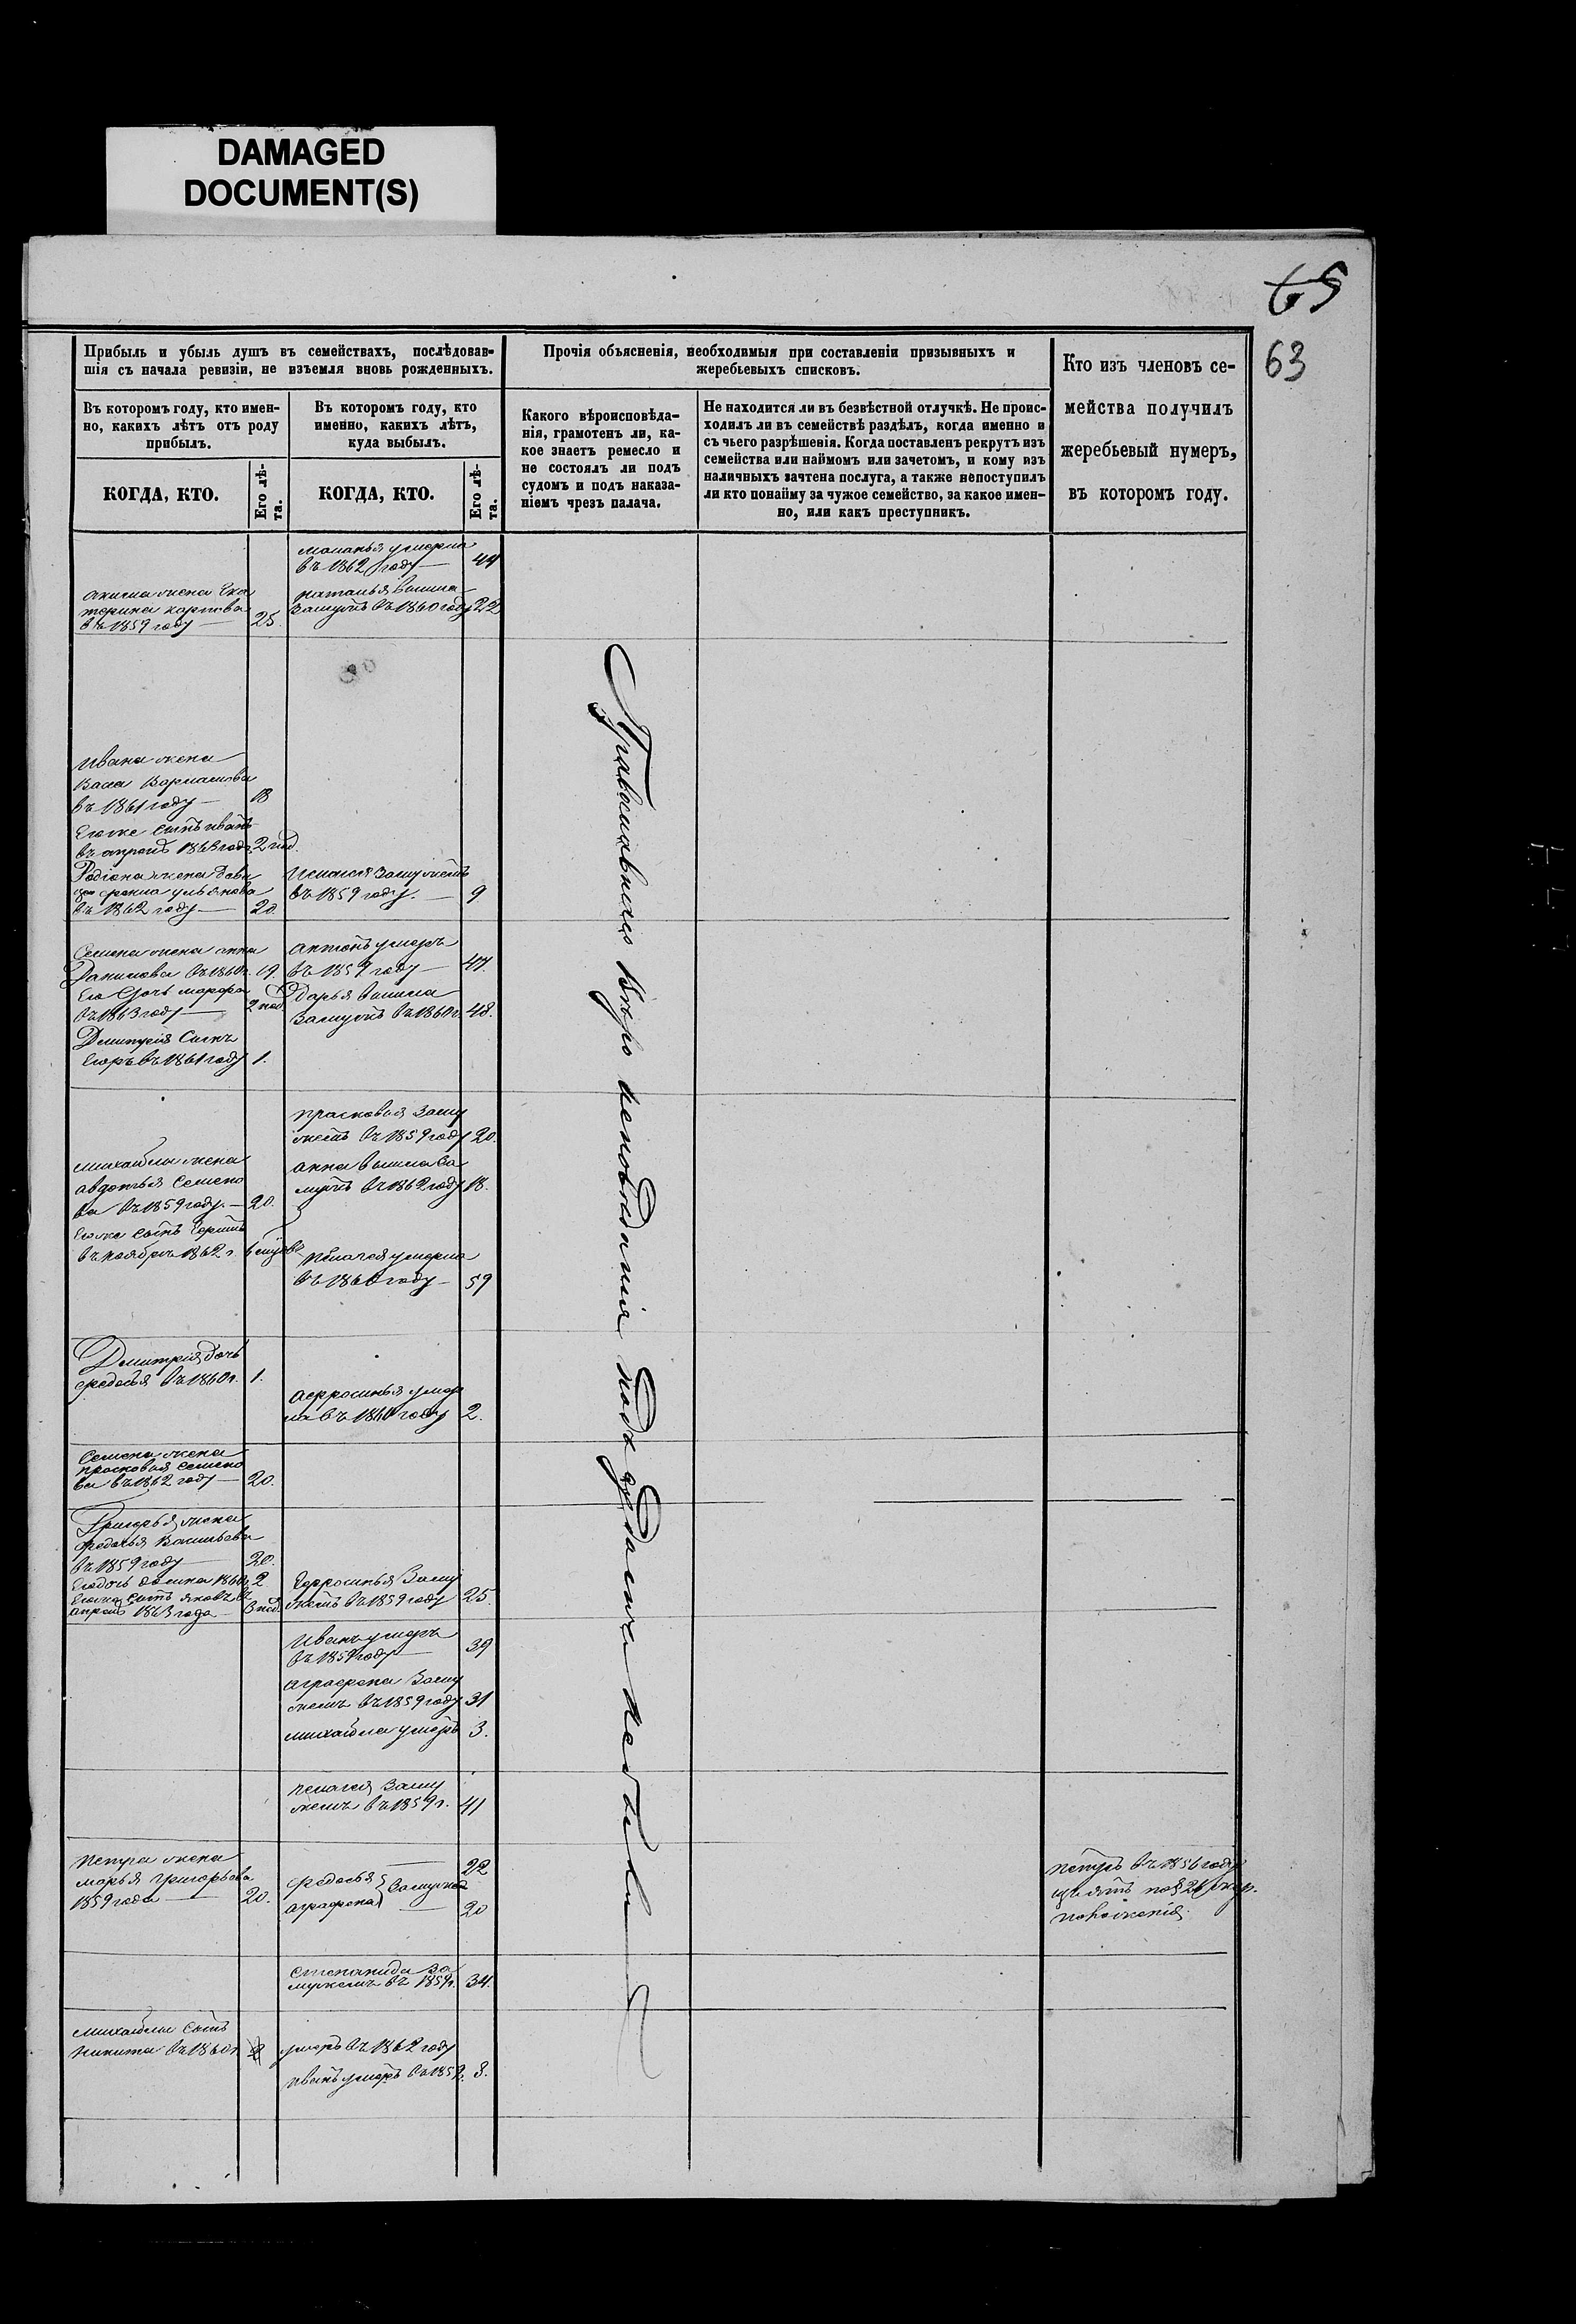 DAMAGED
DOCUMENT(S)
65
63
Прибыль и убыль душъ въ семействахъ, послѣдовав-
шія съ начала ревизіи, не изъемля вновь рожденныхъ.
Прочія объясненія, необходимыя при составленіи призывныхъ и
жеребьевыхъ списковъ.
Кто изъ членовъ се-
мейства получилъ
жеребьевый нумеръ,
въ которомъ году.
Въ которомъ году, кто имен-
но, какихъ лѣтъ отъ роду
прибылъ.
Въ которомъ году, кто
именно, какихъ лѣтъ,
куда выбылъ.
Какого вѣроисповѣда-
нія, грамотенъ ли, ка-
кое знаетъ ремесло и
не состоялъ ли подъ
судомъ и подъ наказа-
ніемъ чрезъ палача.
Не находится ли въ безвѣстной отлучкѣ. Не проис-
ходилъ ли въ семействѣ раздѣлъ, когда именно и
съ чьего разрѣшенія. Когда поставленъ рекрутъ изъ
семейства или наймомъ или зачетомъ, и кому изъ
наличныхъ зачтена послуга, а также непоступилъ
ли кто понайму за чужое семейство, за какое имен-
но, или какъ преступникъ.
КОГДА, КТО.
Его лѣ-
та.
КОГДА, КТО.
Его лѣ-
та.
маланья умерла
въ 1862 году — 44
акима жена Ека
терина карпова
въ 1859 году — 25.
наталья вышла
замужъ въ 1860 году 22
Православнаго вѣро исповѣданія подъ судомъ небыли
Ивана жена
Васа Варламова
въ 1861 году — 18
Его же сынъ иванъ
въ апрѣлѣ 1863 года 2 нед.
Родіона жена
ульянова
въ 1862 году — 20.
замужемъ
въ 1859 году. — 9
Семена жена анна
Данилова въ 1860 г. 19.
Его Дочь марфа
въ 1863 году — 2 нед.
Дмитрія Сынъ
Егоръ въ 1861 году 1.
антонъ умеръ
въ 1859 году — 47.
Дарья вышла
замужъ въ 1860 г. 48.
прасковья заму
жемъ въ 1859 году 20.
анна вышла за
мужъ въ 1862 году 18.
михайлы жена
авдотья Семено
ва въ 1859 году. — 20.
Его же сынъ
въ ноябрѣ 1862 г. 6
пелагея умерла
въ 1860 году — 59
Дмитрія Дочь
федосья въ 1860 г. 1.
афросинья умер
ла въ 1860 году 2.
Семена жена
прасковья семено
ва въ 1862 году — 20.
Григорья жена
федосья Васильева
въ 1859 году — 20.
Его дочь 1860 г. 2
Его же сынъ яковъ въ
апрѣлѣ 1863 года — 3 нед.
Ефросинья заму
жемъ въ 1859 году 25.
Иванъ умеръ
въ 1859 году — 39
аграфена заму
жемъ въ 1859 году 31
михайла умеръ 3.
пелагея заму
жемъ въ 1859 г. 41
петра жена
марья григорьева
1859 года — 20.
федосья — 22
замужемъ
аграфена — 20
петръ въ 1856 году
изъятъ по § 21 рекр.
положенія.
степанида за
мужемъ въ 1859 г. 34.
михайлы сынъ
никита въ 1860 г.
умеръ въ 1862 году
иванъ умеръ въ 1859. 3.